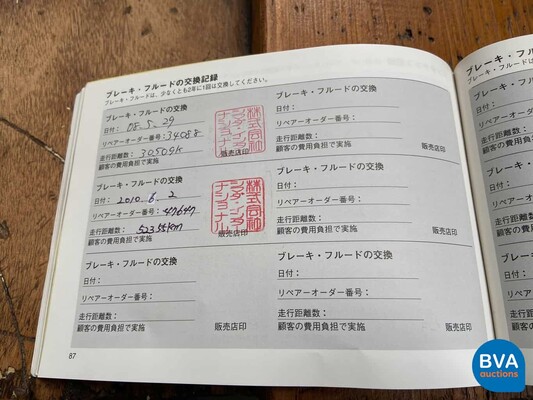 ブレーキ・フルードの交換記録
ブレーキ・フルードは、少なくとも2年に1回は交換してください。
ブレーキ・フルードの交換
日付： 08.5.29
リペアーオーダー番号：34088
走行距離数： 30509K
顧客の費用負担で実施
販売店印
ブレーキ・フルードの交換
日付：
リペアーオーダー番号：
走行距離数：
顧客の費用負担で実施
販売店印
ブレーキ・フルードの交換
日付： 2010.6.2
リペアーオーダー番号：47647
走行距離数： 52355km
顧客の費用負担で実施
株式会社
販売店印
ブレーキ・フルードの交換
日付：
リペアーオーダー番号：
走行距離数：
顧客の費用負担で実施
販売店印
ブレーキ・フルードの交換
日付：
リペアーオーダー番号：
走行距離数：
顧客の費用負担で実施
販売店印
ブレーキ・フルードの交換
日付：
リペアーオーダー番号：
走行距離数：
顧客の費用負担で実施
販売店印
87
ブレーキ・フル
ブレーキ・フルードは
ブレーキ・フル
日付：
リペアーオーダー
走行距離数：
顧客の費用負担
ブレーキ・フ
日付：
リペアーオーダ
走行距離数：
顧客の費用負
ブレーキ・
日付：
リペアーオー
走行距離数
顧客の費用
BVA
auctions